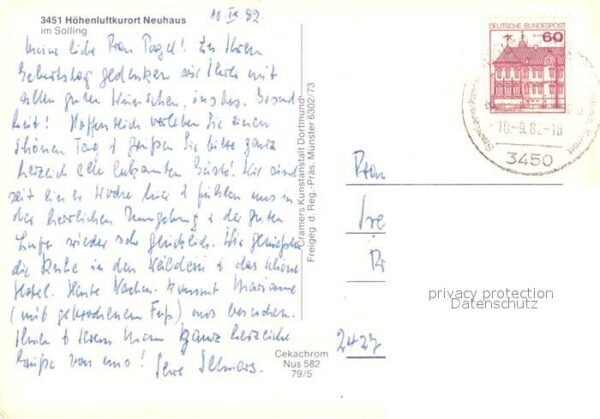 3451 Höhenluftkurort Neuhaus
im Solling
10 IX 82
Meine liebe Frau ! Zu Ihrem
Geburtstag gedenken wir Ihrer mit
allen guten Wünschen, insbes. Gesund
heit! Hoffentlich verleben Sie einen
schönen Tag & grüßen Sie bitte ganz
herzlich alle bekannten Gäste! Wir sind
seit einer Woche hier & fühlen uns in
der herrlichen Umgebung & der guten
Luft wieder sehr glücklich. Wir genießen
die Ruhe in den Wäldern & das schöne
Hotel. Heute Nachm. kommt Marianne
(mit gebrochenem Fuß) uns besuchen.
Ihnen & Ihrem Mann ganz herzliche
Grüße von uns! Ihre
Cramers Kunstanstalt Dortmund
Freigeg. d. Reg.-Präs. Münster 6302/73
Cekachrom
Nus 582
79/5
DEUTSCHE BUNDESPOST
60
10.-9.82-18
3450
Frau
2427
privacy protection
Datenschutz